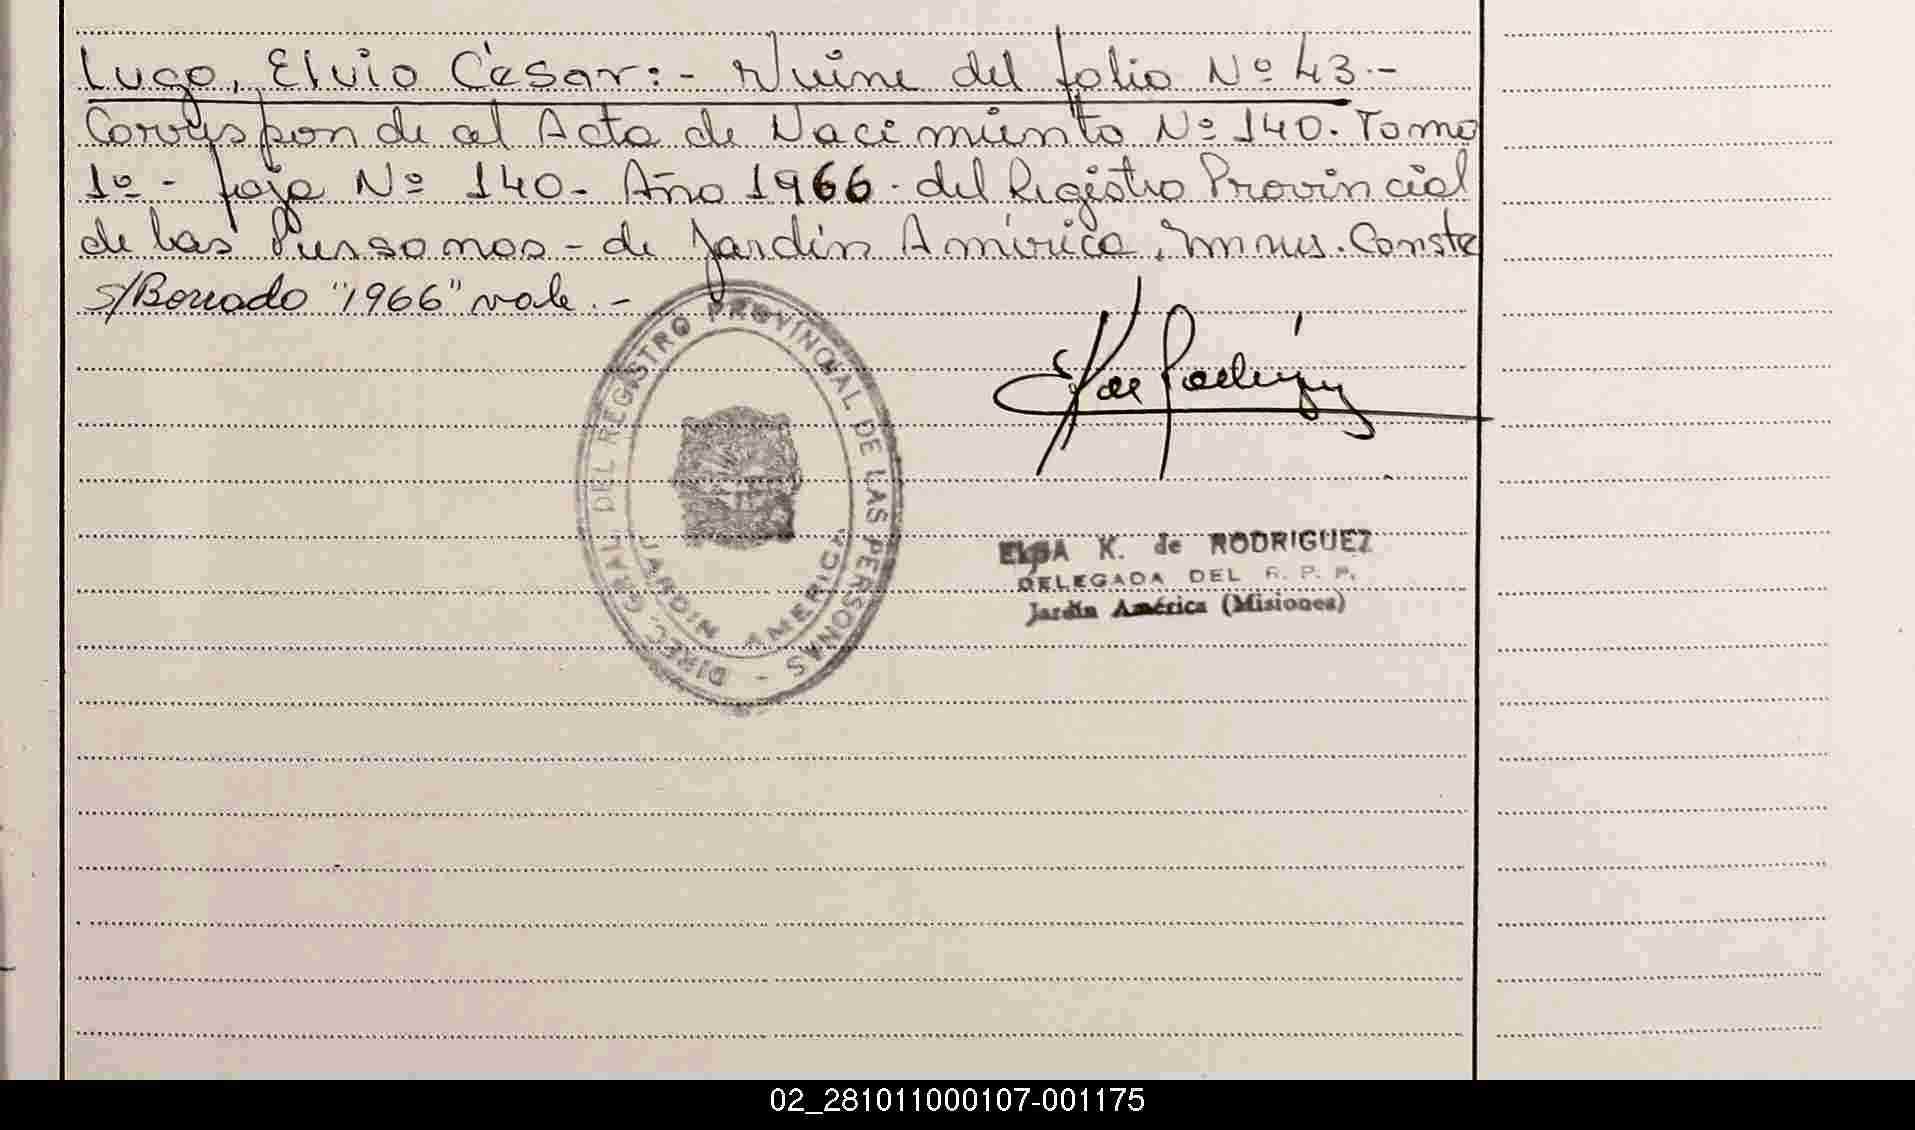 Lugo, Elvio César:- Viene del folio Nº 43.-
Corresponde al Acta de Nacimiento Nº 140. Tomo
1º - foja Nº 140 - Año 1966. del Registro Provincial
de las Personas - de Jardín América, Mnes. Conste
s/Borrado "1966" vale. -
DIREC. GRAL. DEL REGISTRO PROVINCIAL DE LAS PERSONAS -
JARDIN AMERICA
K de Rodríguez
ELBA K. de RODRIGUEZ
DELEGADA DEL R. P. P.
Jardín América (Misiones)
02_281011000107-001175